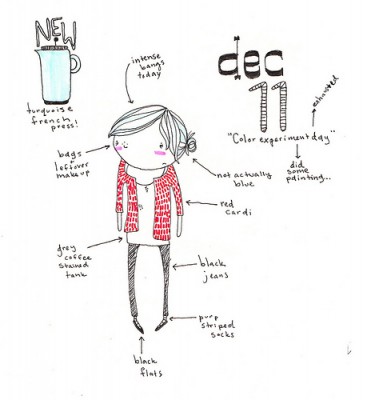 NEW
turquoise
french
press!
intense
bangs
today
dec
11
exhausted
"Color experiment day"
did
some
painting...
bags
leftover
makeup
not actually
blue
red
cardi
grey
coffee
stained
tank
black
jeans
purp
striped
socks
black
flats